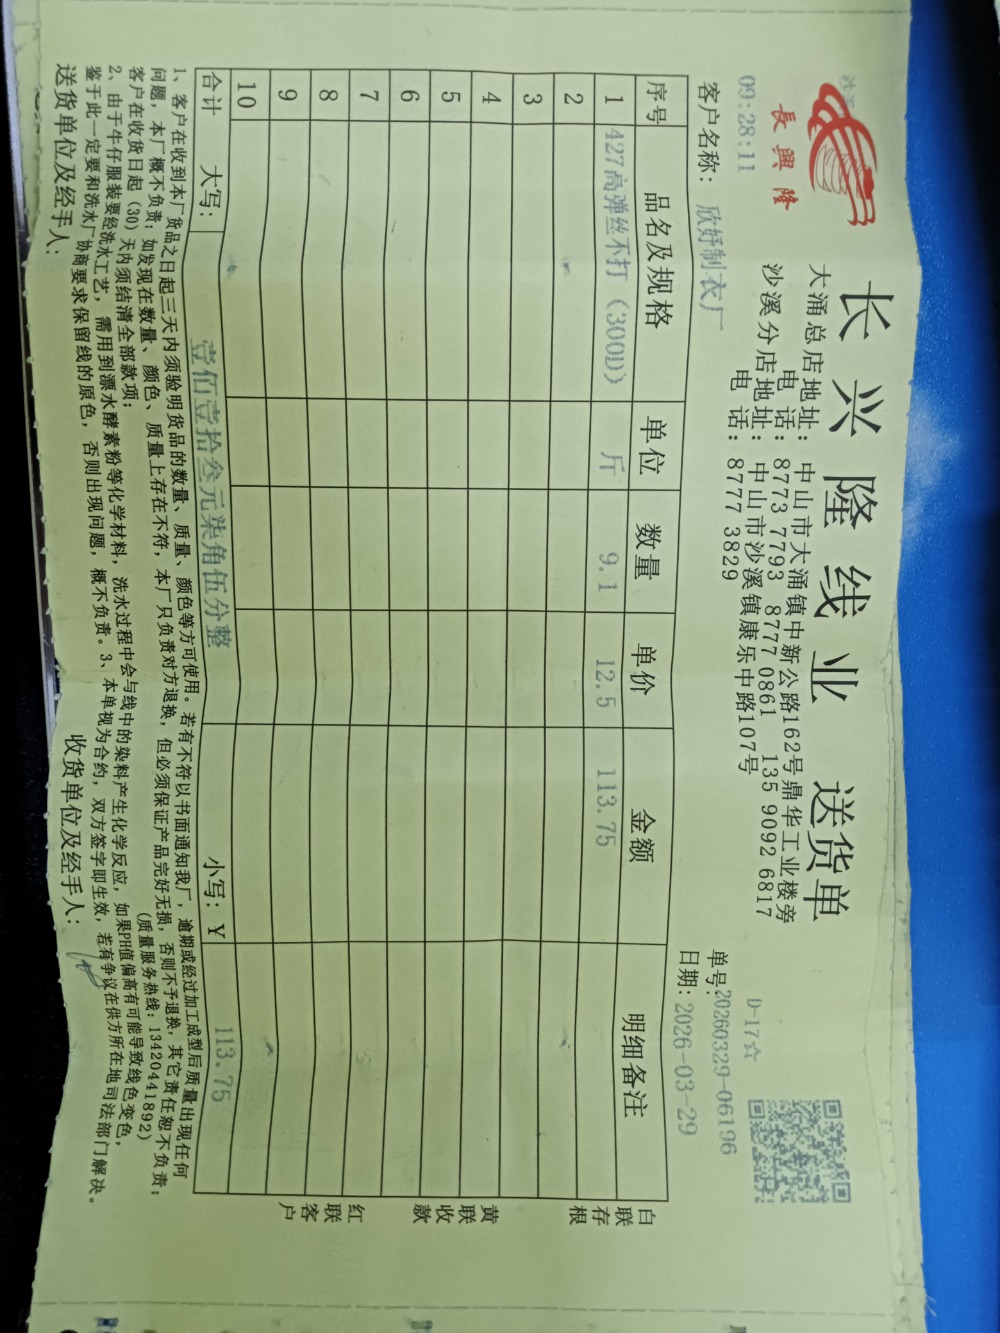 長興隆
长兴隆线业 送货单
大涌总店地址：中山市大涌镇中新公路162号鼎华工业楼旁
电 话：8773 7793 8777 0861 135 9092 6817
沙溪分店地址：中山市沙溪镇康乐中路107号
电 话：8777 3829
D-17☆
09:28:11
单号:20260329-06196
客户名称： 欣妤制衣厂
日期：2026-03-29
序号 品名及规格 单位 数量 单价 金额 明细备注
1 427高弹丝不打（300D） 斤 9.1 12.5 113.75
2
3
4
5
6
7
8
9
10
合计 大写： 壹佰壹拾叁元柒角伍分整 小写：¥ 113.75
白联存根
黄联收款
红联客户
1、客户在收到本厂货品之日起三天内须验明货品的数量、质量、颜色等方可使用。若有不符以书面通知我厂，逾期或经过加工成型后质量出现任何
问题，本厂概不负责；如发现在数量、颜色、质量上存在不符，本厂只负责对方退换，但必须保证产品完好无损，否则不予退换，其它责任恕不负责；
客户在收货日起（30）天内须结清全部款项； (质量服务热线：13420441892)
2、由于牛仔服装要经洗水工艺，需用到漂水酵素粉等化学材料，洗水过程中会与线中的染料产生化学反应，如果PH值偏高有可能导致线色变色，
鉴于此一定要和洗水厂协商要求保留线的原色，否则出现问题，概不负责。3、本单视为合约，双方签字即生效，若有争议在供方所在地司法部门解决。
送货单位及经手人： 收货单位及经手人：